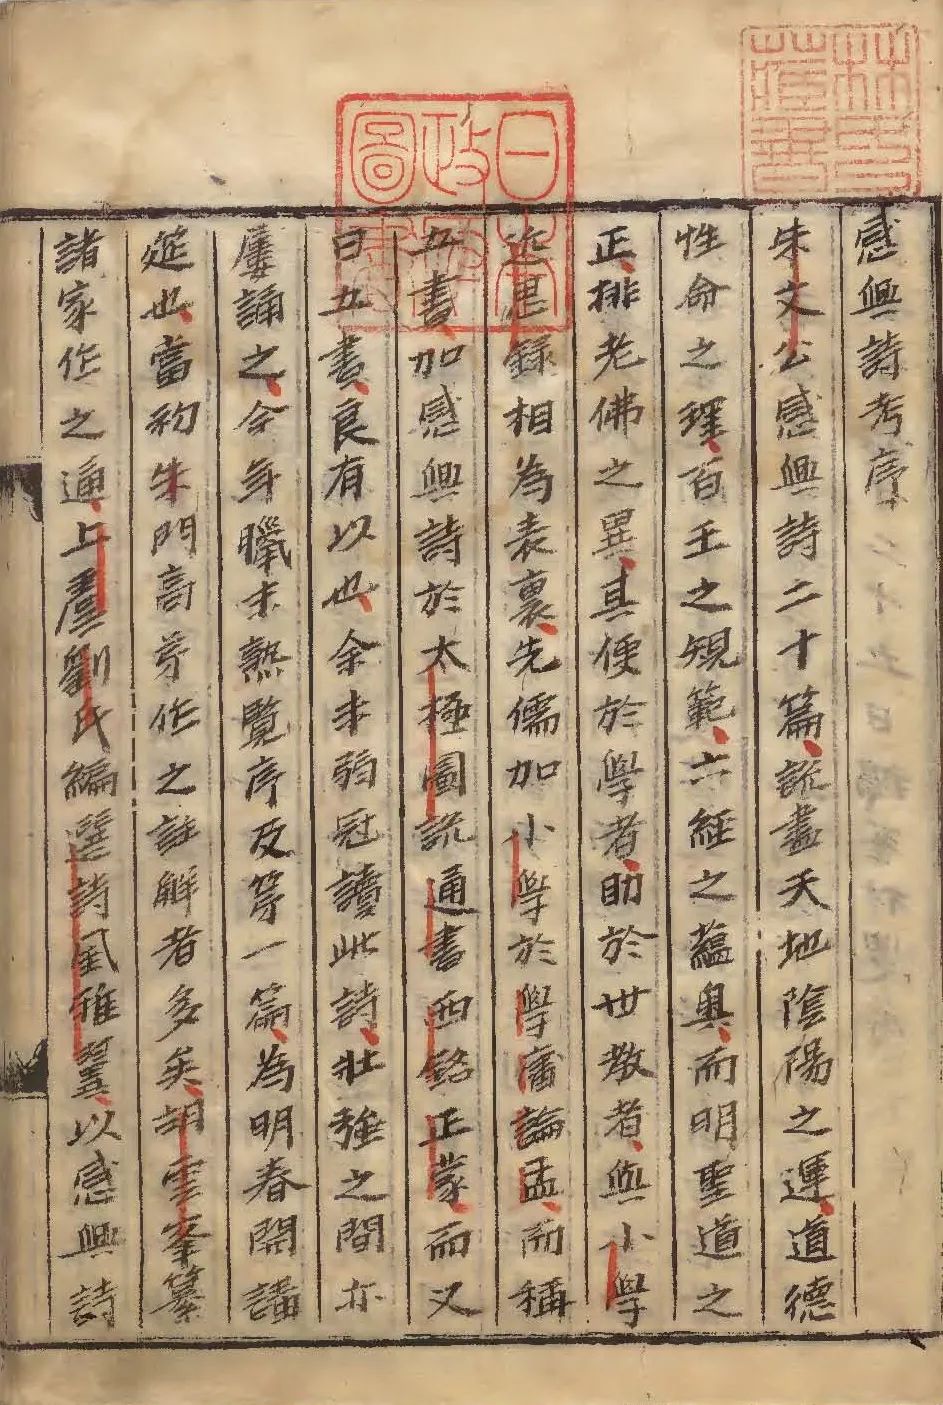 感興詩考序
朱文公感興詩二十篇說盡天地陰陽之運道德
性命之理百王之規範六經之蘊奧而明聖道之
正排老佛之異其便於學者助於世教者與小學
近思錄相為表裏先儒加小學於學庸論孟而稱
五書加感興詩於太極圖說通書西銘正蒙而又
曰五書良有以也余未弱冠讀此詩壯強之間亦
屢誦之今年臘末熟覽序及第一篇為明春開講
筵也當初朱門高弟作之註解者多矣胡雲峯纂
諸家作之通上虞劉氏編選詩風雅翼以感興詩
林氏藏書